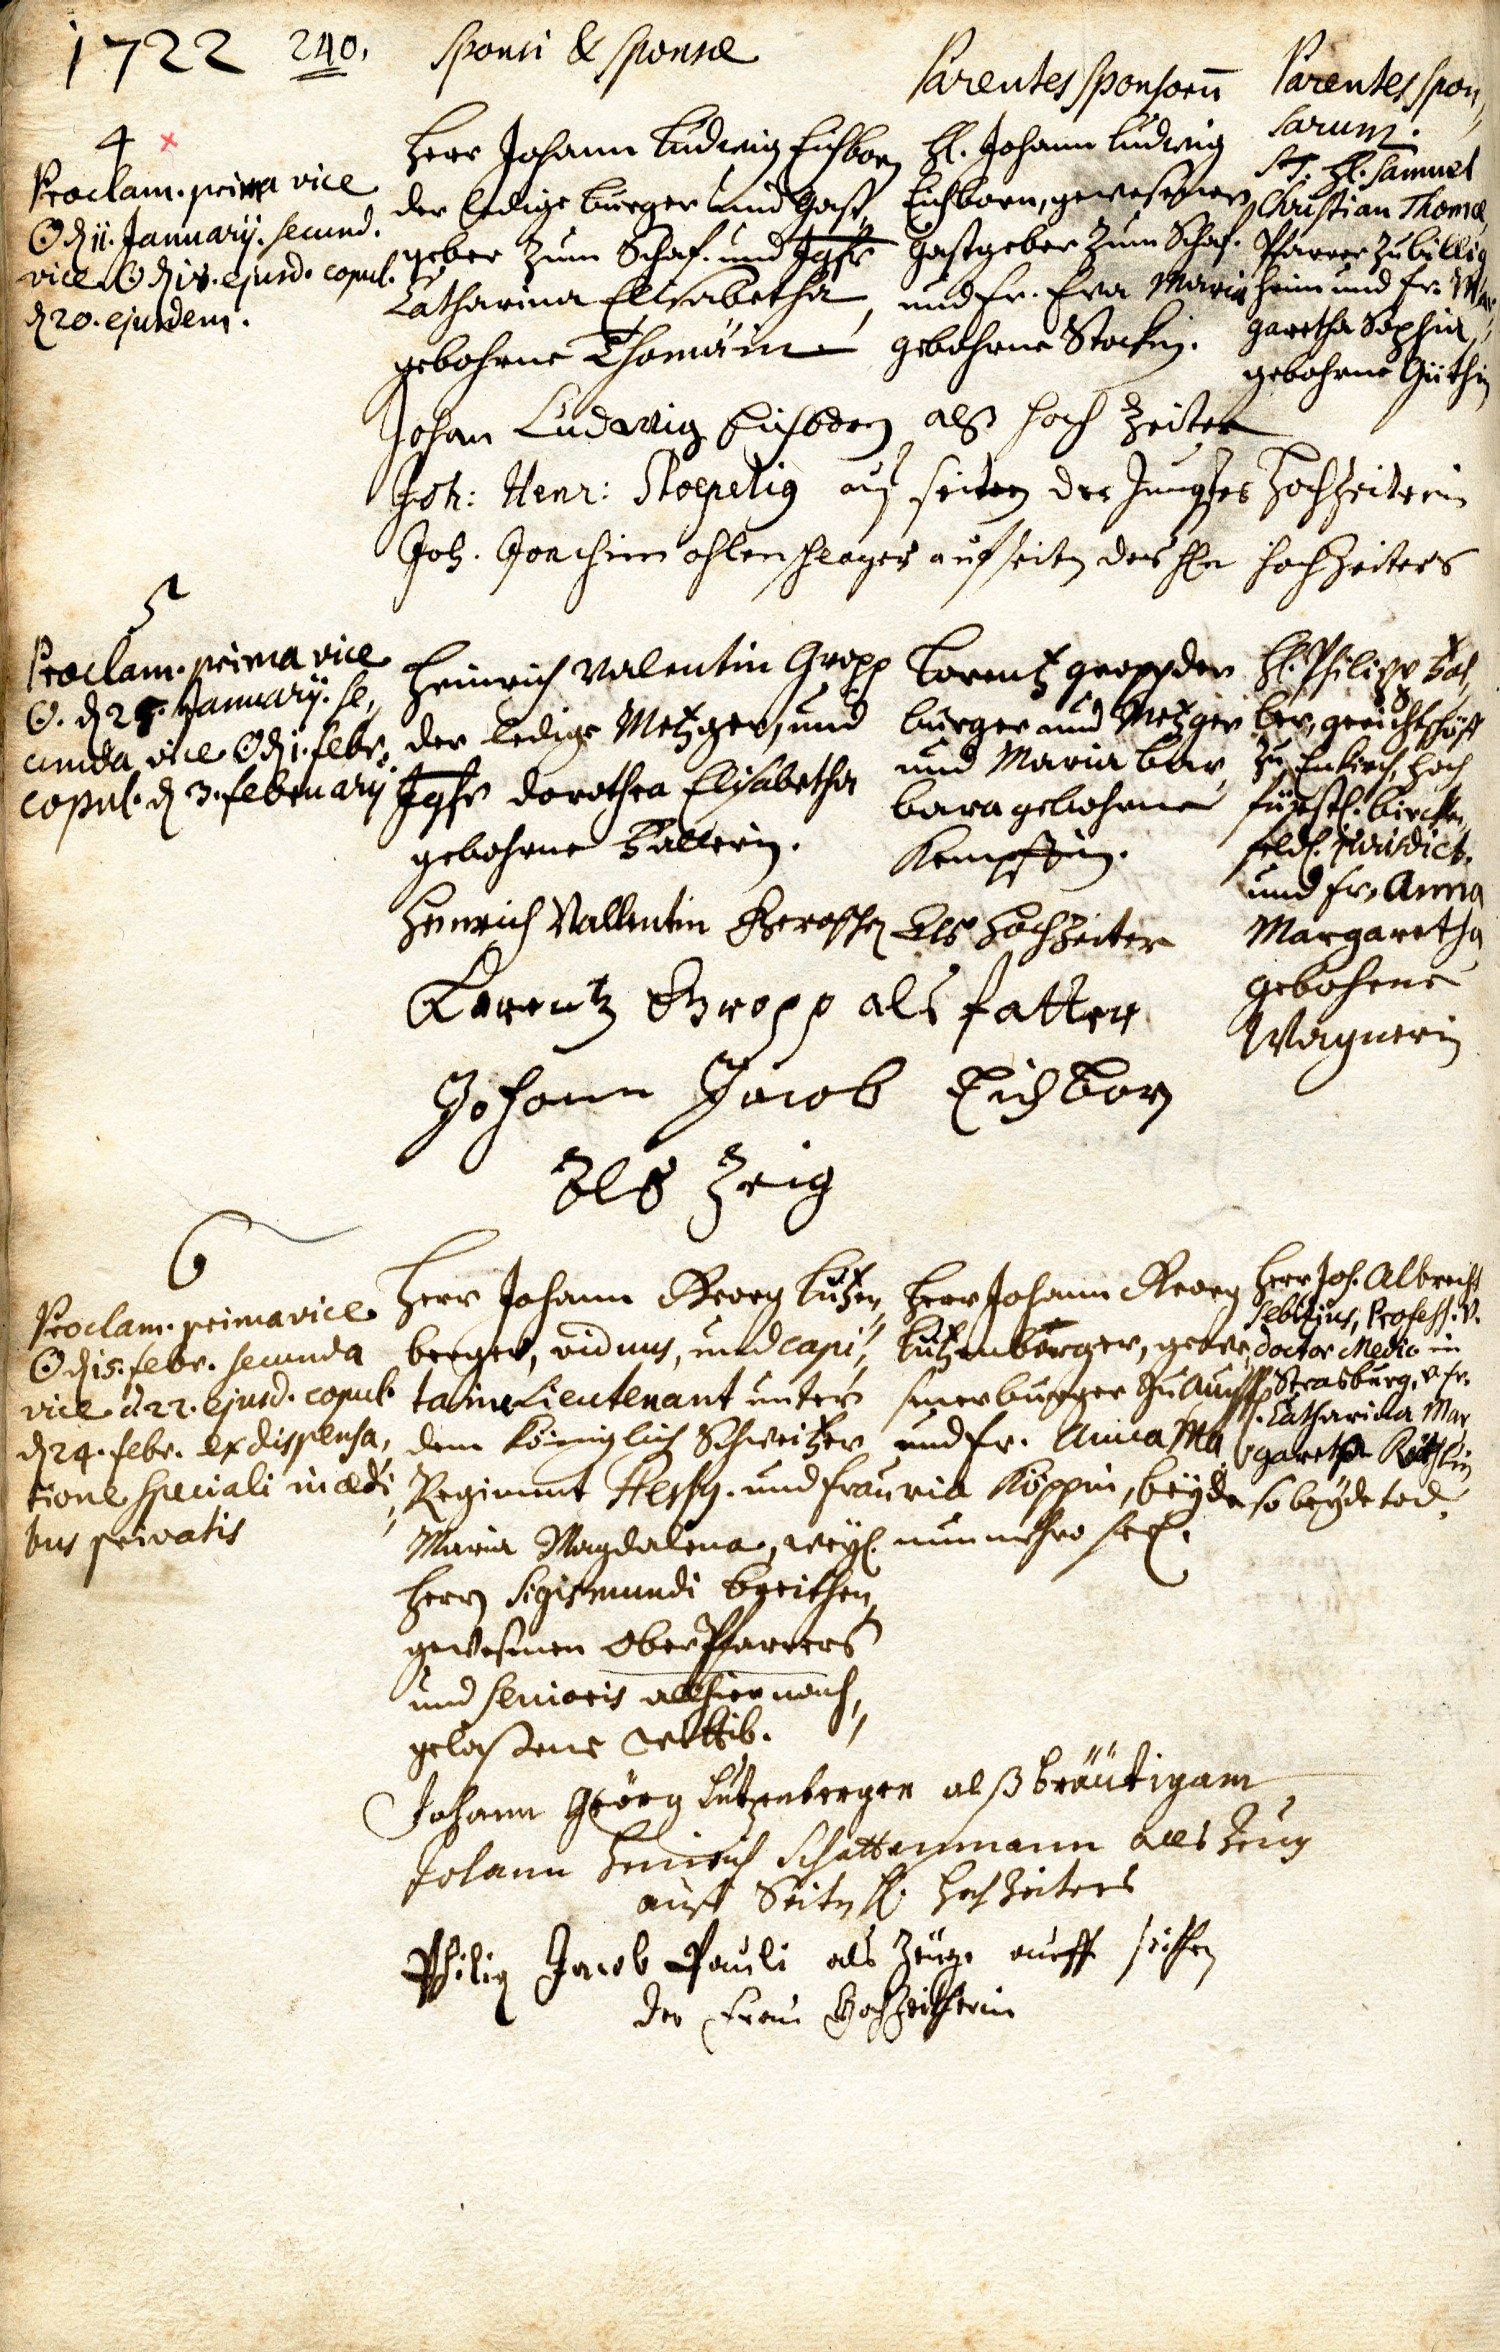 1722 240. Sponsi & Sponsæ Parentes Sponsorū Parentes Spon,,
sarum.
4
Proclam. prima vice
☉ d 11. January. secund.
vice ☉ d 18. ejusd. copul.
d 20. ejusdem.
Herr Johann Ludwig Eichborn
der ledige burger und Gast,,
geber zum Schaf. und Jgfr
Catharina Elisabetha,
gebohrne Thomäin
H. Johann Ludwig
Eichborn, gewesener
Gastgeber zum Schaf.
und fr. Eva Maria
gebohrne Stockin.
H. Samuel
Christian Thomæ,
Pfarrer zu billig
heim und fr. Mar,,
garetha Sophia,
gebohrne Güthin
Johan Ludwig Eichborn alß hoch Zeiter
Joh: Henr: Stoepelig auf seiten der Jungfer Hochzeiterin
Joh. Joachim ohlenschlager auf seiten des Hn hochzeiters
5
Proclam. prima vice
☉. d 25. January. se,,
cunda vice ☉ d 1. febr.
copul. d 3. february
Heinrich Valentin Gropp
der ledige Metzger, und
Jgfr dorothea Elisabetha
gebohrne Ballerin.
Lorentz gropp der
burger und Metzger
und Maria bar,,
bara gebohrne
Kempffin.
H. Philipp Bal,,
ler, gerichtschöff
zu Enkirch, hoch
fürstl. bircken,,
feld. jurisdict.
und fr. Anna
Margaretha
gebohrne
Wagnerin
Henrich Vallentin Als Hochzeiter
Lorentz Gropp als fatter
Johann Jacob Eichborn
Als Zeig
6
Proclam. prima vice
☉ d 15. febr. secunda
vice d 22. ejusd. copul.
d 24. febr. ex dispensa,,
tione speciali in ædi,,
bus privatis
Herr Johann Georg Lutzen,,
berger, viduus, und capi,,
taine Lieutenant unter
dem Königlich Schweitzer
Regiment Hessy. und frau
Maria Magdalena, weyl.
Herrn Sigismundi
gewesenen Ober Pfarrers
und Senioris allhier nach,,
gelaßene Wittib.
Herr Johann Georg
Lutzenberger, gewe,,
sener burger zu
und fr. Anna Ma,,
ria Köppin, beyde
nunmehro seel.
Herr Joh. Albrecht
Sebizius, Profess. v.
doctor Medic. in
Strasburg, v. fr.
Catharina Mar
garetha
so beyde tod.
Johann Geörg Lutzenberger alß bräütigam
Johann Heinrich Schattenmann alls Zeug
auff Seiten H. Hochzeiters
Philip Jacob Pauli als Zeüge auff seithen
der frau Hochzeitherin